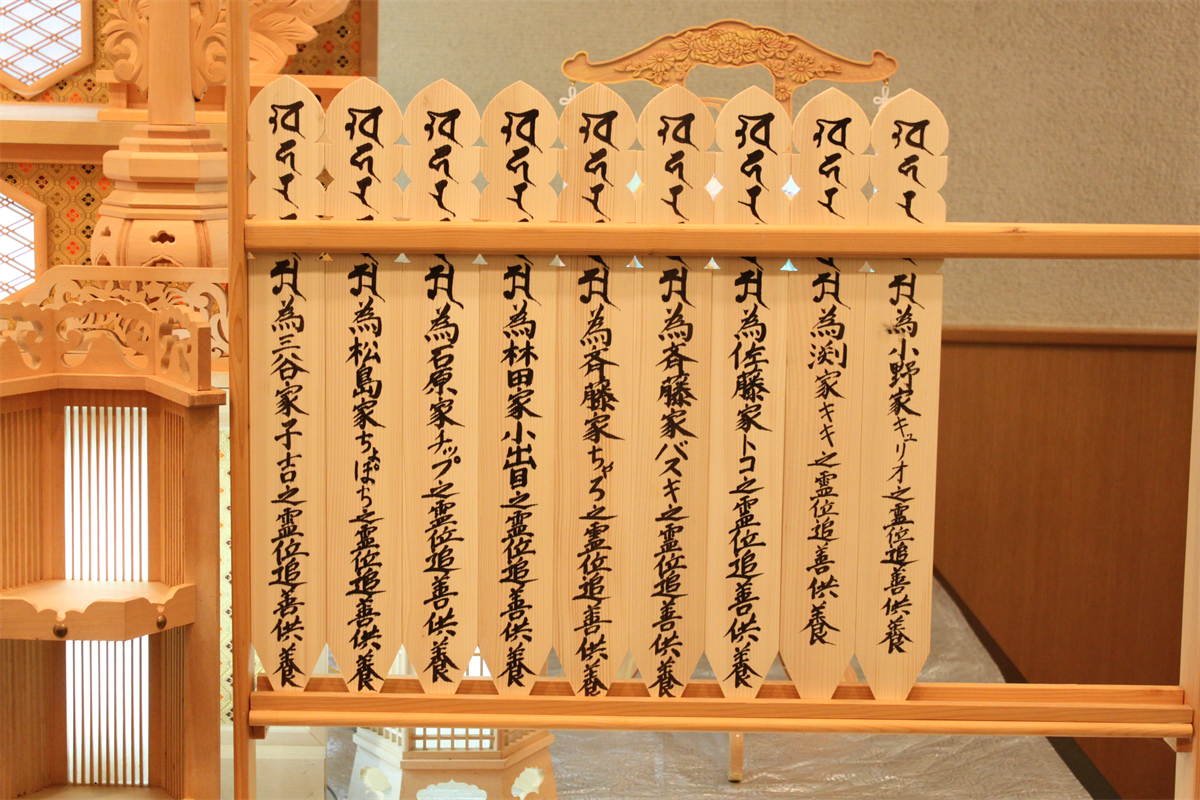 為小野家キュリオ之霊位追善供養
為渕家キキ之霊位追善供養
為佐藤家トコ之霊位追善供養
為斉藤家バズキ之霊位追善供養
為斉藤家ちゃろ之霊位追善供養
為林田家小出目之霊位追善供養
為石原家チップ之霊位追善供養
為松島家ちょぼち之霊位追善供養
為三谷家子吉之霊位追善供養